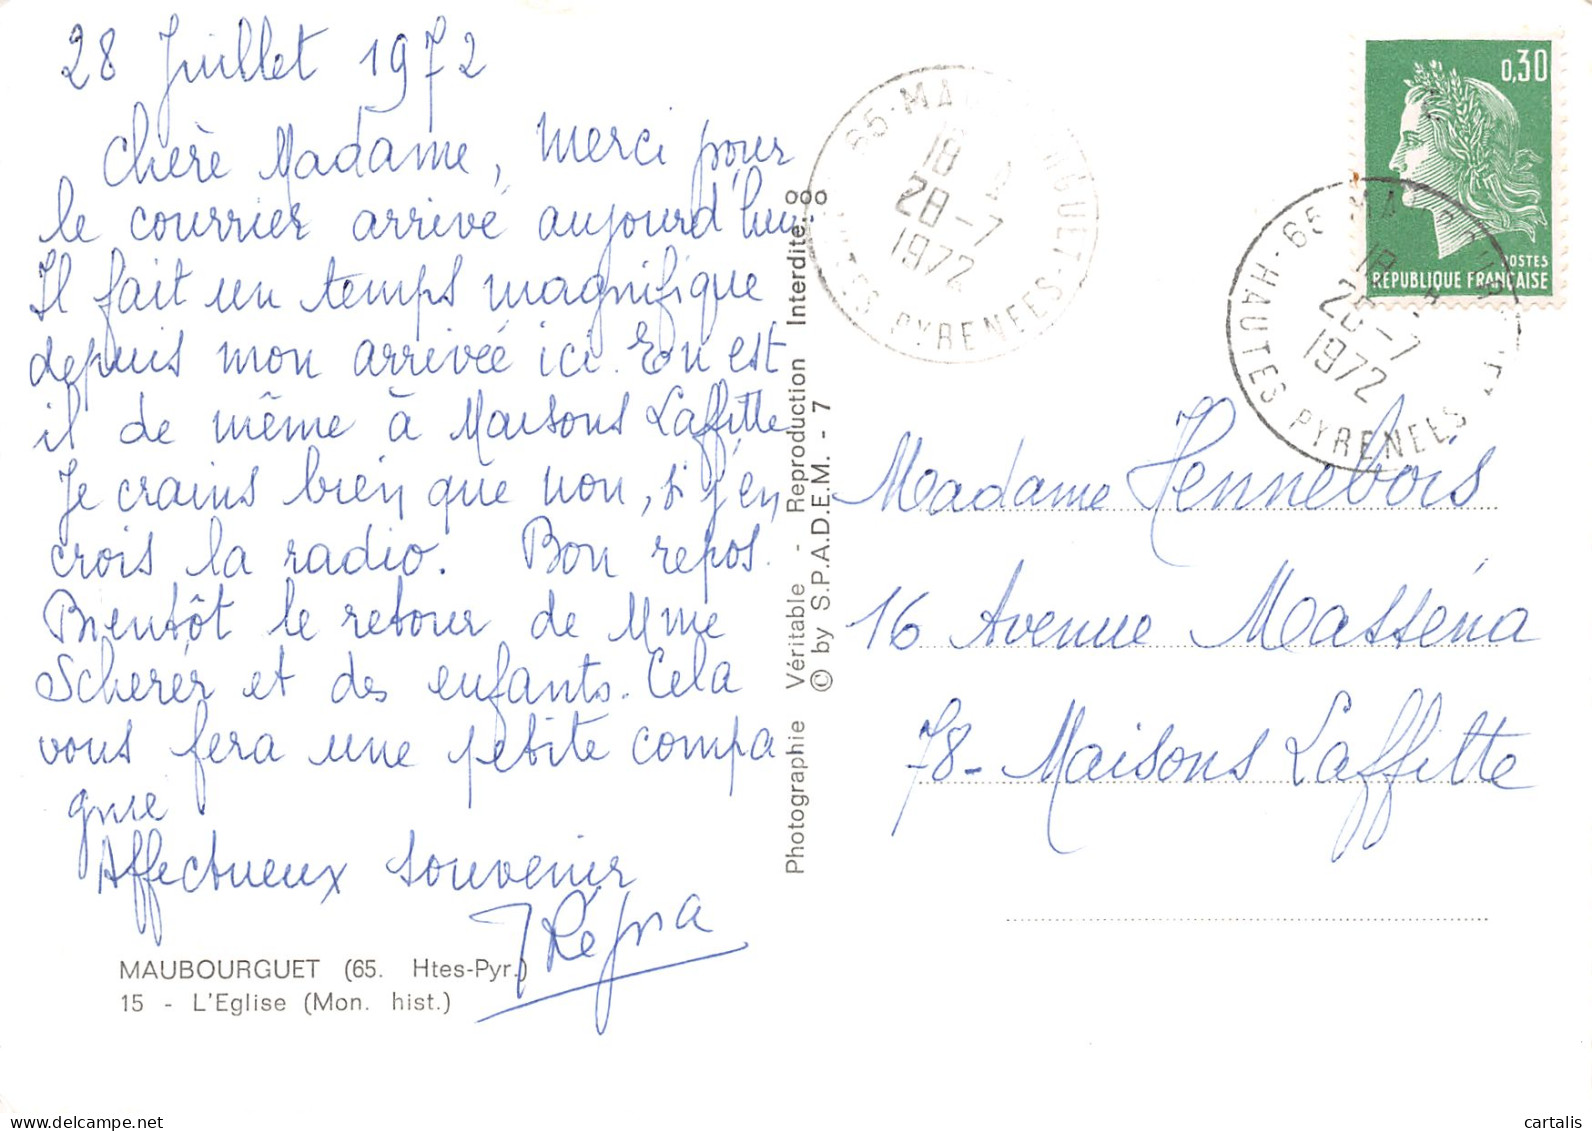 28 Juillet 1972
Chère Madame, merci pour
le courrier arrivé aujourd'hui.
Il fait un temps magnifique
depuis mon arrivée ici. En est
il de même à Maisons Laffitte
Je crains bien que non, si j'en
crois la radio. Bon repos.
Bientôt le retour de Mme
Scherer et des enfants. Cela
vous fera une petite compa
gnie
Affectueux souvenir
MAUBOURGUET (65. Htes-Pyr.)
15 - L'Eglise (Mon. hist.)
Photographie Véritable - Reproduction Interdite
© by S.P.A.D.E.M. - 7
65 HAUTES PYRENEES
18
28-7
1972
0,30
POSTES
RÉPUBLIQUE FRANÇAISE
65 HAUTES PYRENEES
18
28-7
1972
Madame Hennebois
16 Avenue Masséna
78- Maisons Laffitte
www.delcampe.net
cartalis